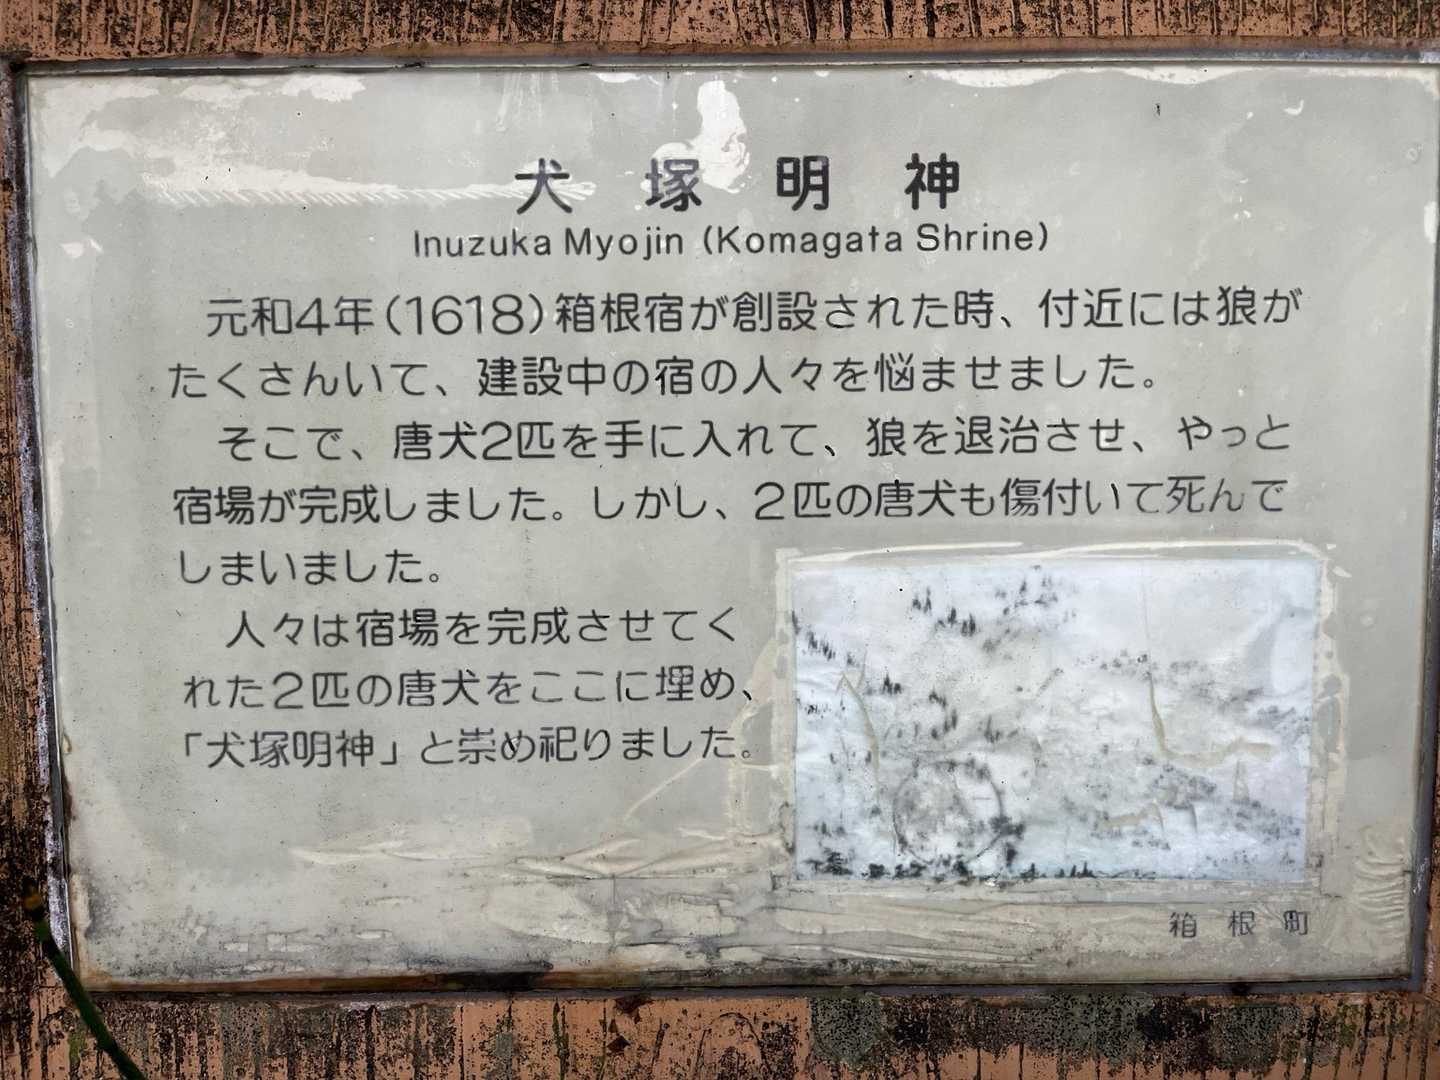 犬塚明神
Inuzuka Myojin (Komagata Shrine)
元和4年(1618)箱根宿が創設された時、付近には狼が
たくさんいて、建設中の宿の人々を悩ませました。
そこで、唐犬2匹を手に入れて、狼を退治させ、やっと
宿場が完成しました。しかし、2匹の唐犬も傷付いて死んで
しまいました。
人々は宿場を完成させてく
れた2匹の唐犬をここに埋め、
「犬塚明神」と崇め祀りました。
箱根町